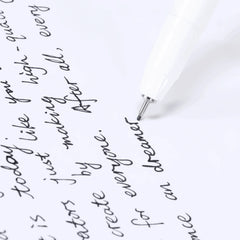 today like you
high-quali
is just making
After all, every
ators by
create everyone.
for
an dreamer